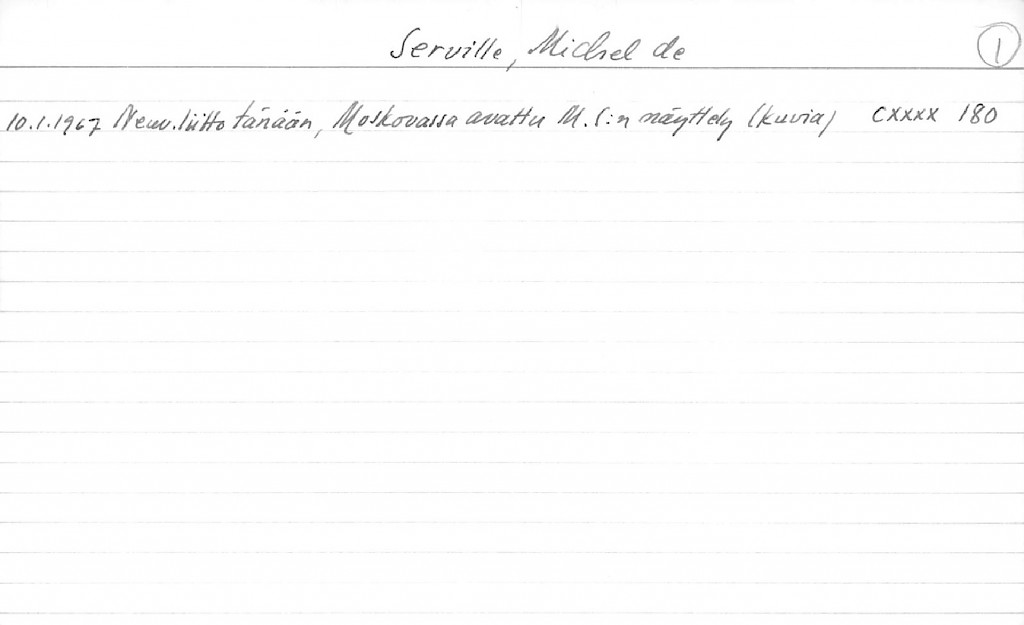 Serville, Michel de
1
10.1.1967 Neuv.liitto tänään, Moskovassa avattu M. S:n näyttely (kuvia) CXXXX 180